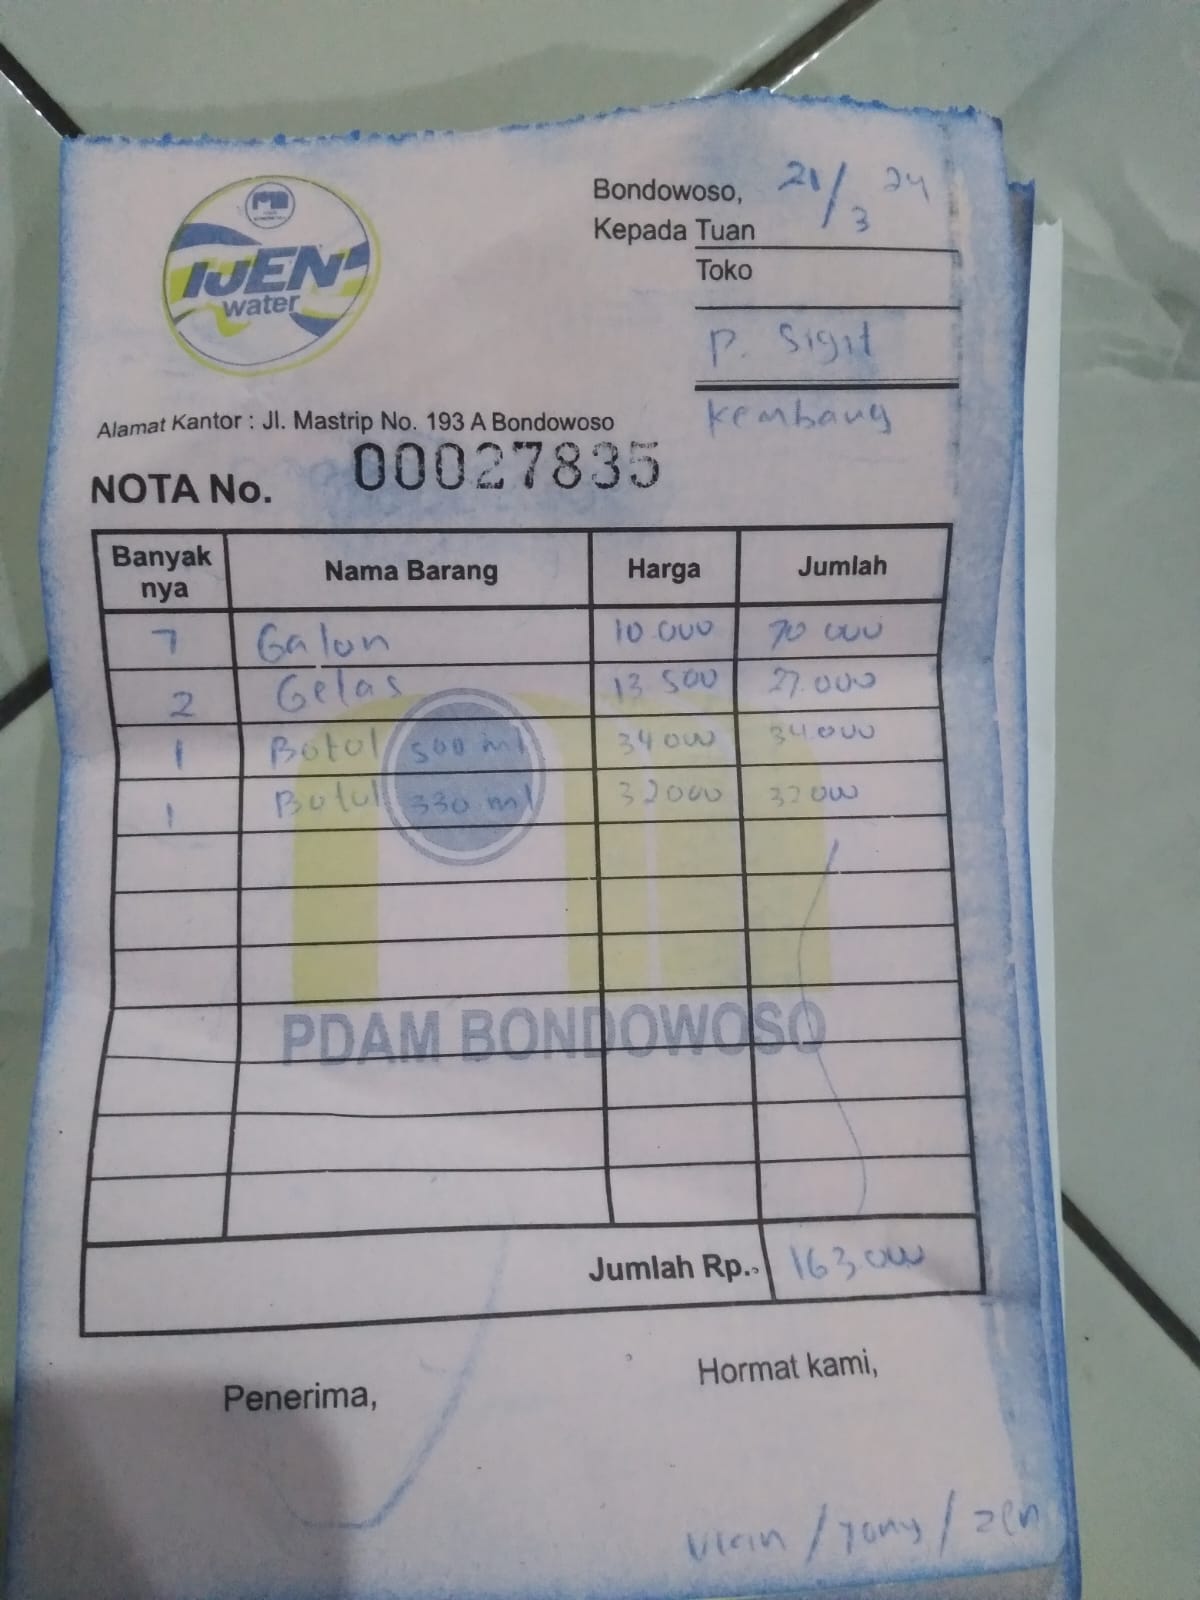 IJEN
water
Bondowoso, 21/3 24
Kepada Tuan
Toko
P. Sigit
Kembang
Alamat Kantor : Jl. Mastrip No. 193 A Bondowoso
NOTA No. 00027835
Banyak nya Nama Barang Harga Jumlah
7 Galon 10.000 70 000
2 Gelas 13 500 27.000
1 Botol 500 ml 34 000 34.000
1 Botol 330 ml 32000 32 000
PDAM BONDOWOSO
Jumlah Rp.. 163.000
Penerima,
Hormat kami,
/ Tony / zen